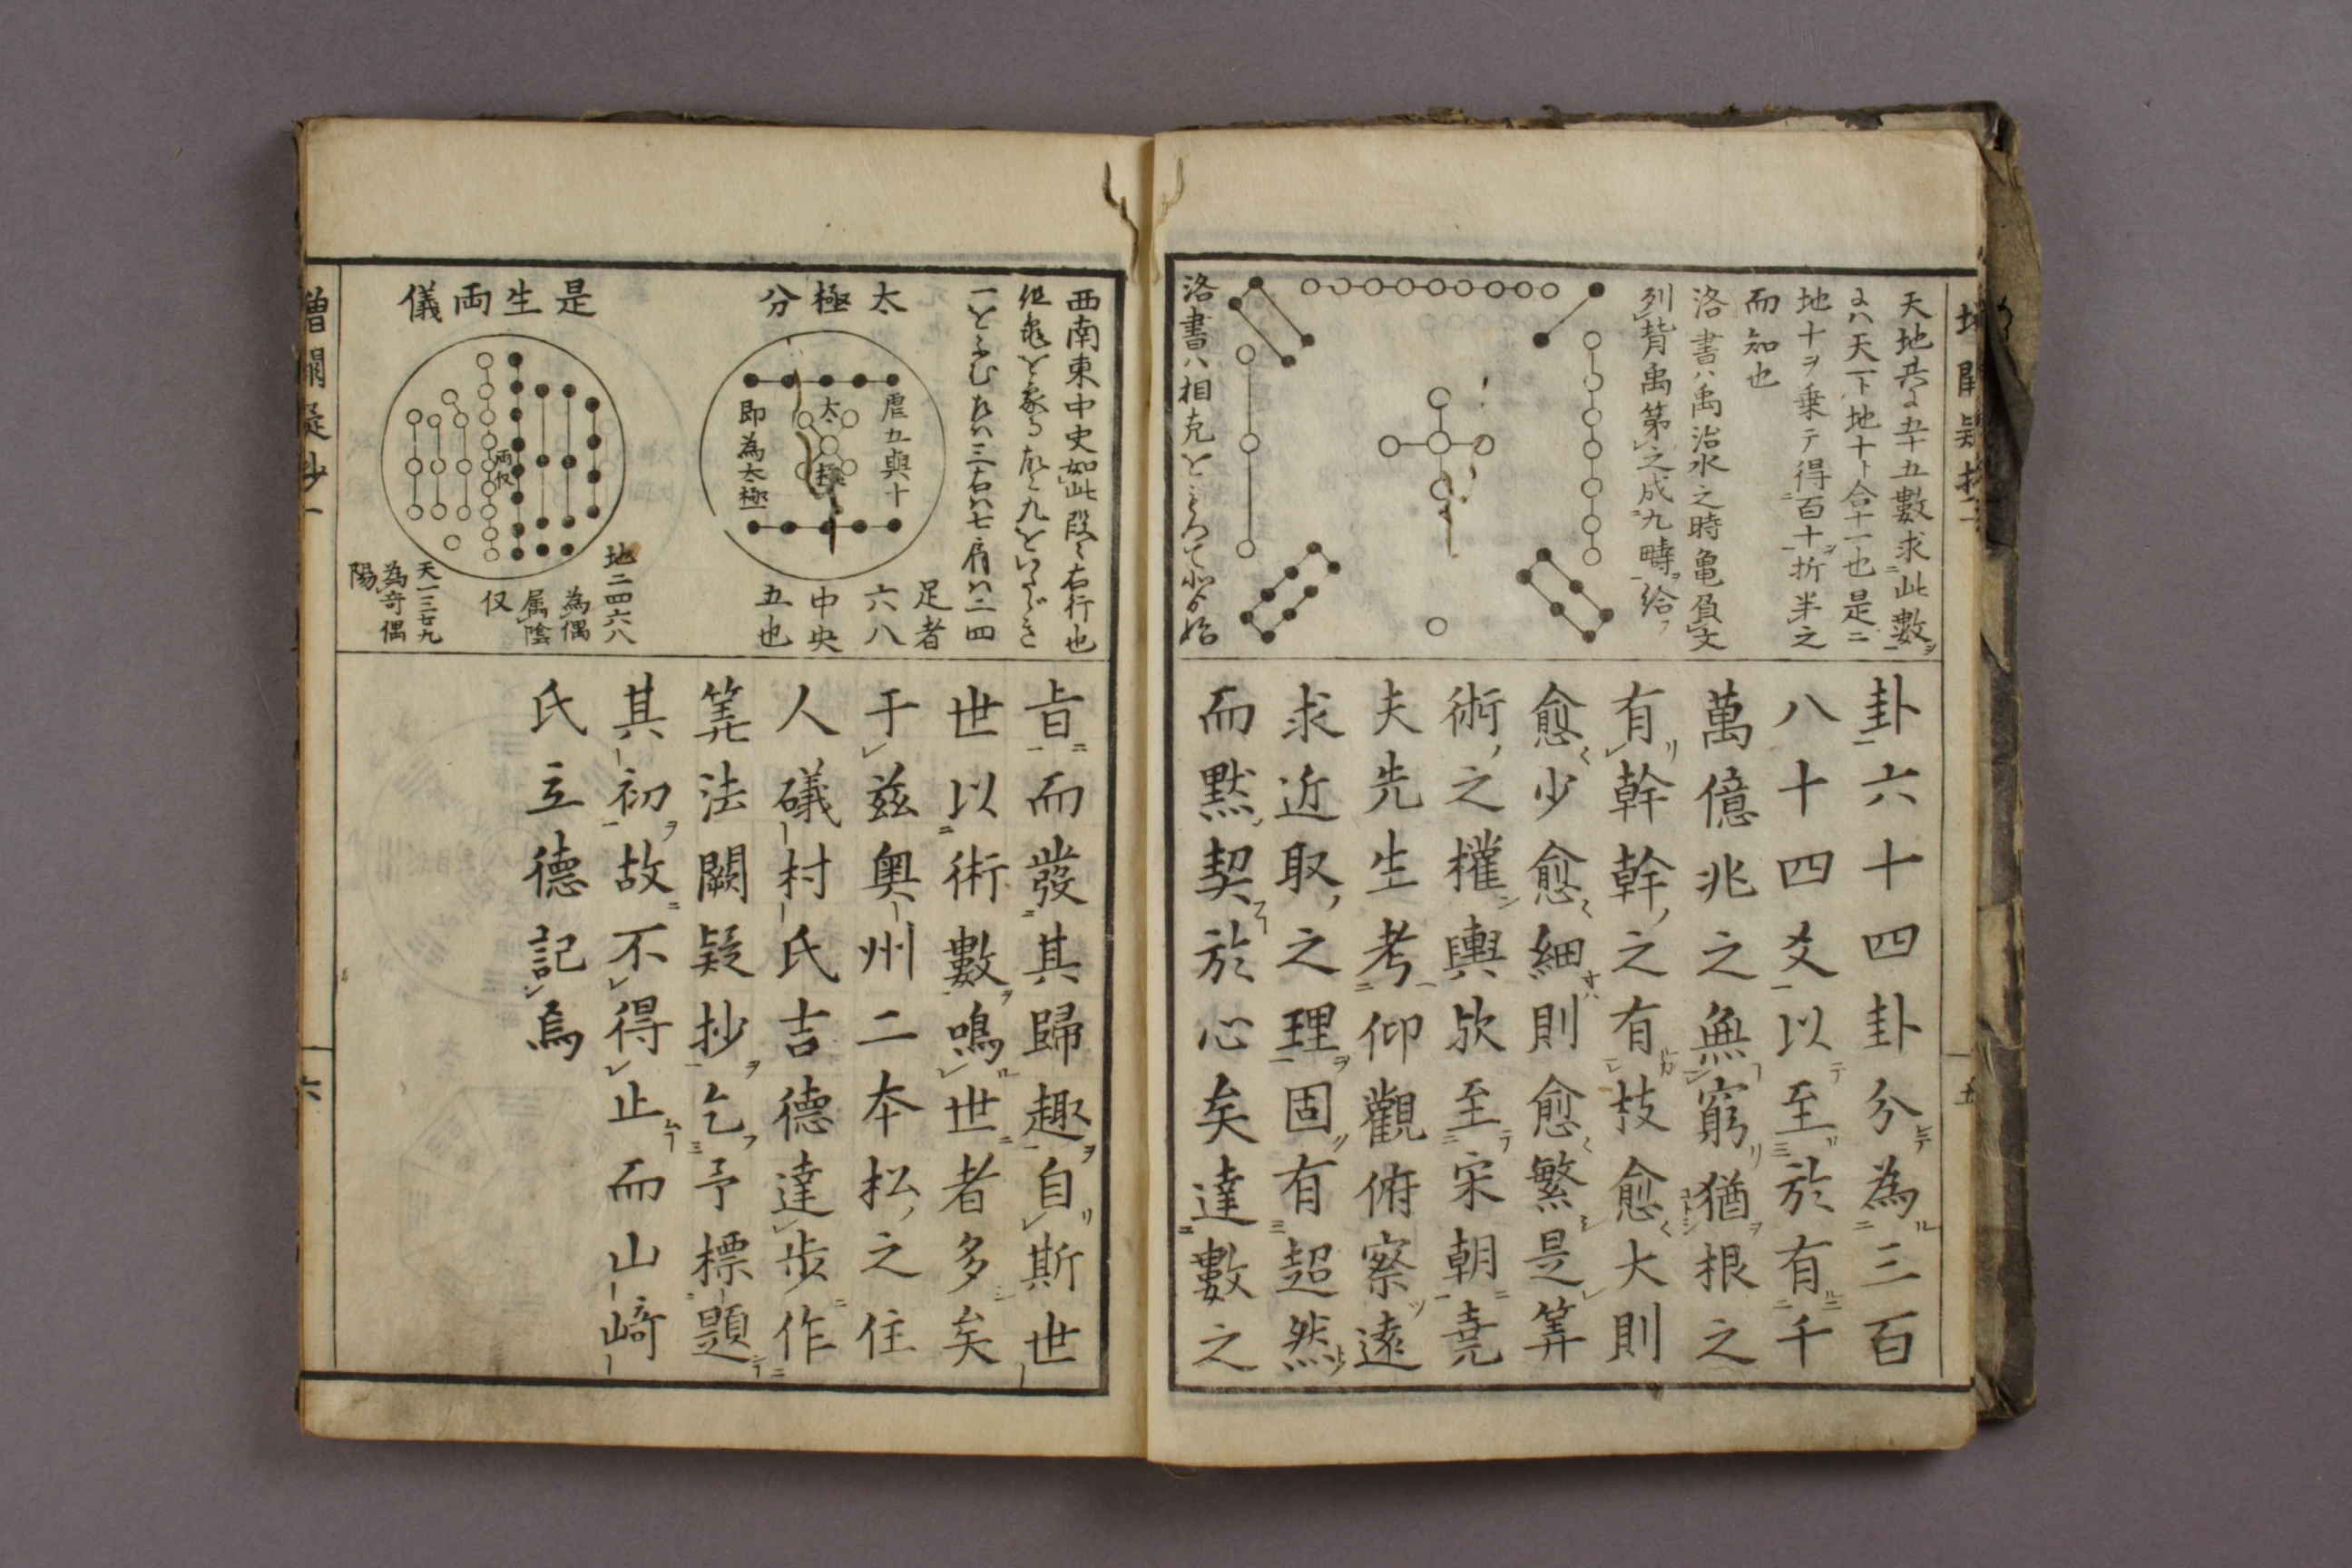 天地共ニ五十五數求此數ヲ
ニハ天一ト地十ト合十一也是ニ
地十ヲ乗テ得百十ヲ折半之
而知也
洛書ハ禹治水之時亀負文
列背禹第之成九疇ヲ給フ
洛書ハ相克と
卦六十四卦分テ為ル三百
八十四爻以テ至リ於有ル千
萬億兆之無窮リ猶ヲ根之
有リ幹幹ノ之有枝愈〻大則
愈〻少愈〻細則愈〻繁シ是筭
術ノ之權輿欤至テ宋朝堯
夫先生考仰觀俯察ツ遠
求近取ノ之理ヲ固リ有超然
而黙契於心矣達數之
西南東中央如此段〻右行也
一と
旨而發其歸趣ヲ自リ斯世
世以術數ヲ鳴ル世者多シ矣
于茲奥州二本松ノ之住
人礒村氏吉德達歩作
筭法闕疑抄ヲ乞フ予標題
其初ヲ故不得止而山﨑
氏立德記焉
太極分
虚五與十
太極
即為太極
足者
六八
中央
五也
是生両儀
両仪
地二四六八
為偶
属陰
仪
天一三七九
為奇偶
陽
増闕疑抄一
六